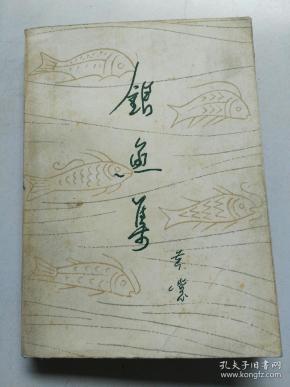 银鱼集
黄裳
孔夫子旧书网